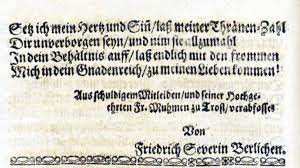 Setz ich mein Hertz und Siñ/ laß meiner Thränen-Zahl
Dir unverborgen seyn/ und nim sie allzumahl
In dein Behältnis auff/ laß endlich mit den frommen
Mich in dein Gnadenreich/ zu meinen Lieben kommen!
Aus schuldigem Mitleiden/ und seiner Hochge-
ehrten Fr. Muhmen zu Trost/ verabfasset
Von
Friedrich Severin Berlichen.